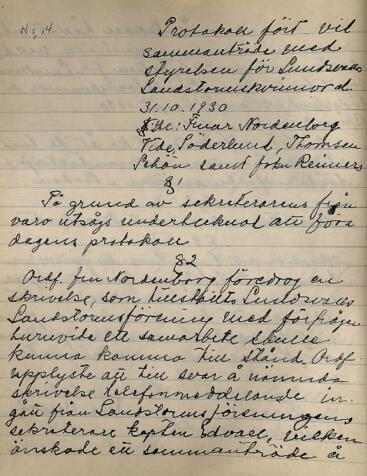 No 14
Protokoll fört vid
sammanträde med
styrelsen för Lundsvalls
Landstormskvinnor d.
31.10.1930
Nordenborg
Söderlund, Thomsen
Schön samt fröken Reimers
§1
På grund av sekreterarens från
varo utsågs undertecknad att föra
dagens protokoll
§2
Ordf. fru Nordenborg föredrog en
skrivelse, som tillställts
Landstormsförening med förfrågan
huruvida ett samarbete skulle
kunna komma till stånd. Ordf
upplyste att till svar å nämnda
skrivelse telefonmeddelande in-
gått från Landstormsföreningens
sekreterare kapten Edvall, vilken
önskade ett sammanträde å